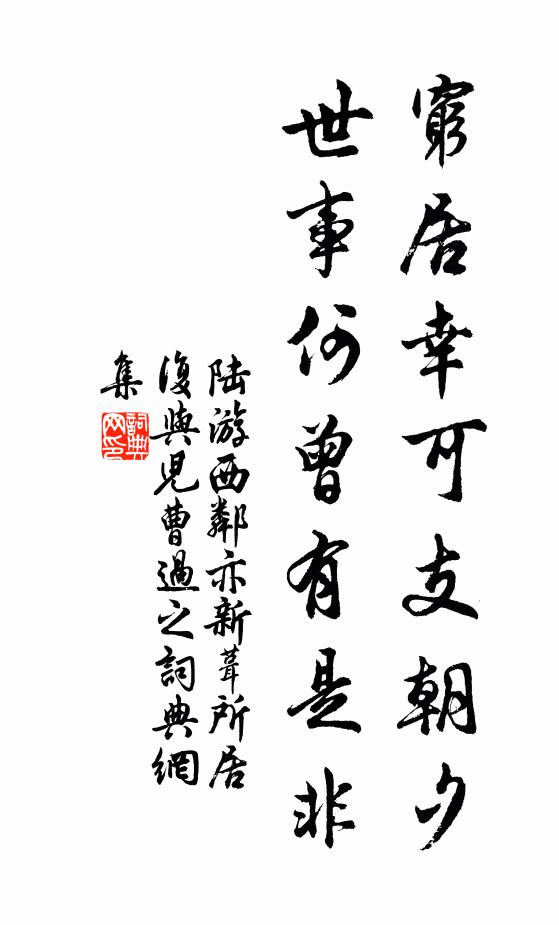 窮居幸可支朝夕
世事何曾有是非
陆游西鄰亦新葺所居
復與兒曹過之詞典網
集
詞典
网印